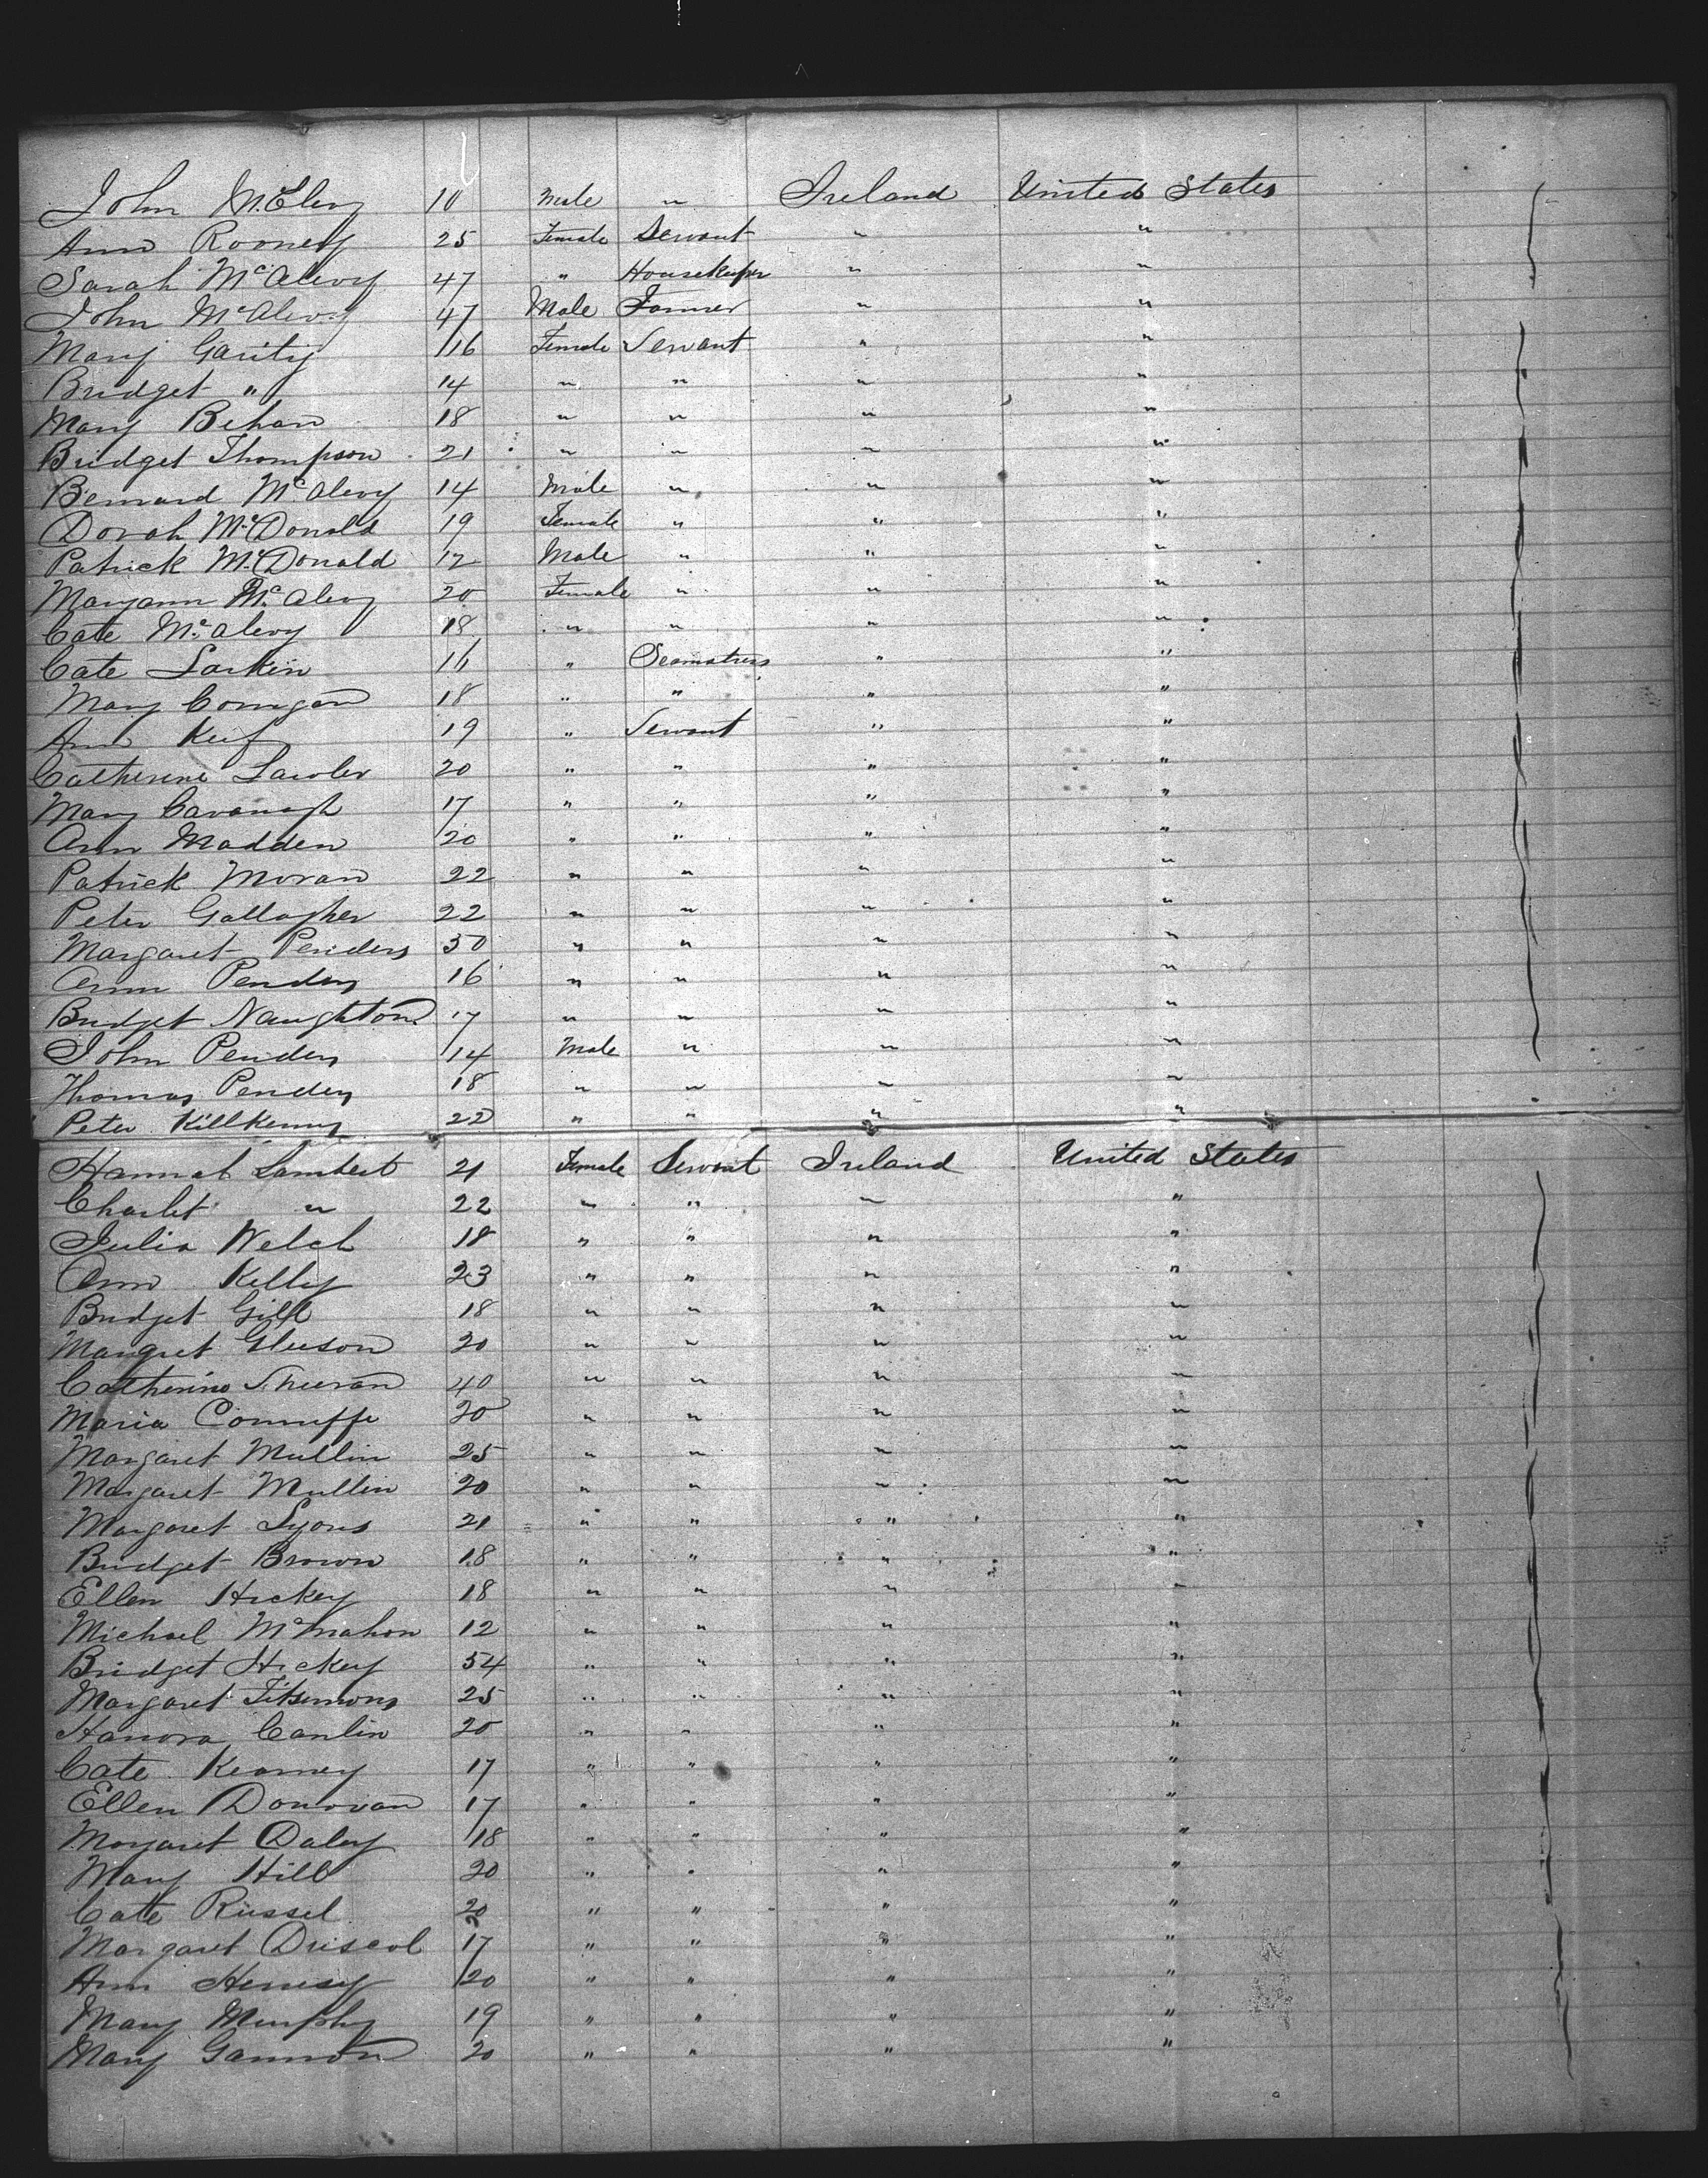 John McElevy 10 Male " Ireland United States
Ann Rooney 25 Female Servant " "
Sarah McAlevy 47 " Housekeeper " "
John McAlevy 47 Male Farmer " "
Mary Garity 16 Female Servant " "
Bridget " 14 " " " "
Mary Behan 18 " " " "
Bridget Thompson 21 " " " "
Bernard McAlevy 14 Male " " "
Dorah McDonald 19 Female " " "
Patrick McDonald 12 Male " " "
Maryann McAlevy 20 Female " " "
Cate McAlevy 18 " " " "
Cate Larkin 16 " Seamstress " "
Mary Corrigan 18 " " " "
Ann Keif 19 " Servant " "
Catherine Lawler 20 " " " "
Mary Cavanagh 17 " " " "
Ann Madden 20 " " " "
Patrick Moran 22 " " " "
Peter Gallagher 22 " " " "
Margaret Penders 50 " " " "
Ann Penders 16 " " " "
Bridget Naughton 17 " " " "
John Penders 14 Male " " "
Thomas Penders 18 " " " "
Peter Killkenny 22 " " " "
Hannah Lambert 21 Female Servant Ireland United States
Charlet " 22 " " " "
Julia Welch 18 " " " "
Ann Kelly 23 " " " "
Bridget Gill 18 " " " "
Margret Gleeson 20 " " " "
Catherine Sheeran 40 " " " "
Maria 20 " " " "
Margaret Mullin 25 " " " "
Margaret Mullin 20 " " " "
Margaret Lyons 21 " " " "
Bridget Brown 18 " " " "
Ellen Hickey 18 " " " "
Michael McMahon 12 " " " "
Bridget Hickey 54 " " " "
Margaret Fitsimons 25 " " " "
Hanora Canlin 20 " " " "
Cate Kearney 17 " " " "
Ellen Donovan 17 " " " "
Margaret Daley 18 " " " "
Mary Hill 20 " " " "
Cate Russel 20 " " " "
Margaret Driscol 17 " " " "
Ann Henesy 20 " " " "
Mary Murphy 19 " " " "
Mary Gannon 20 " " " "